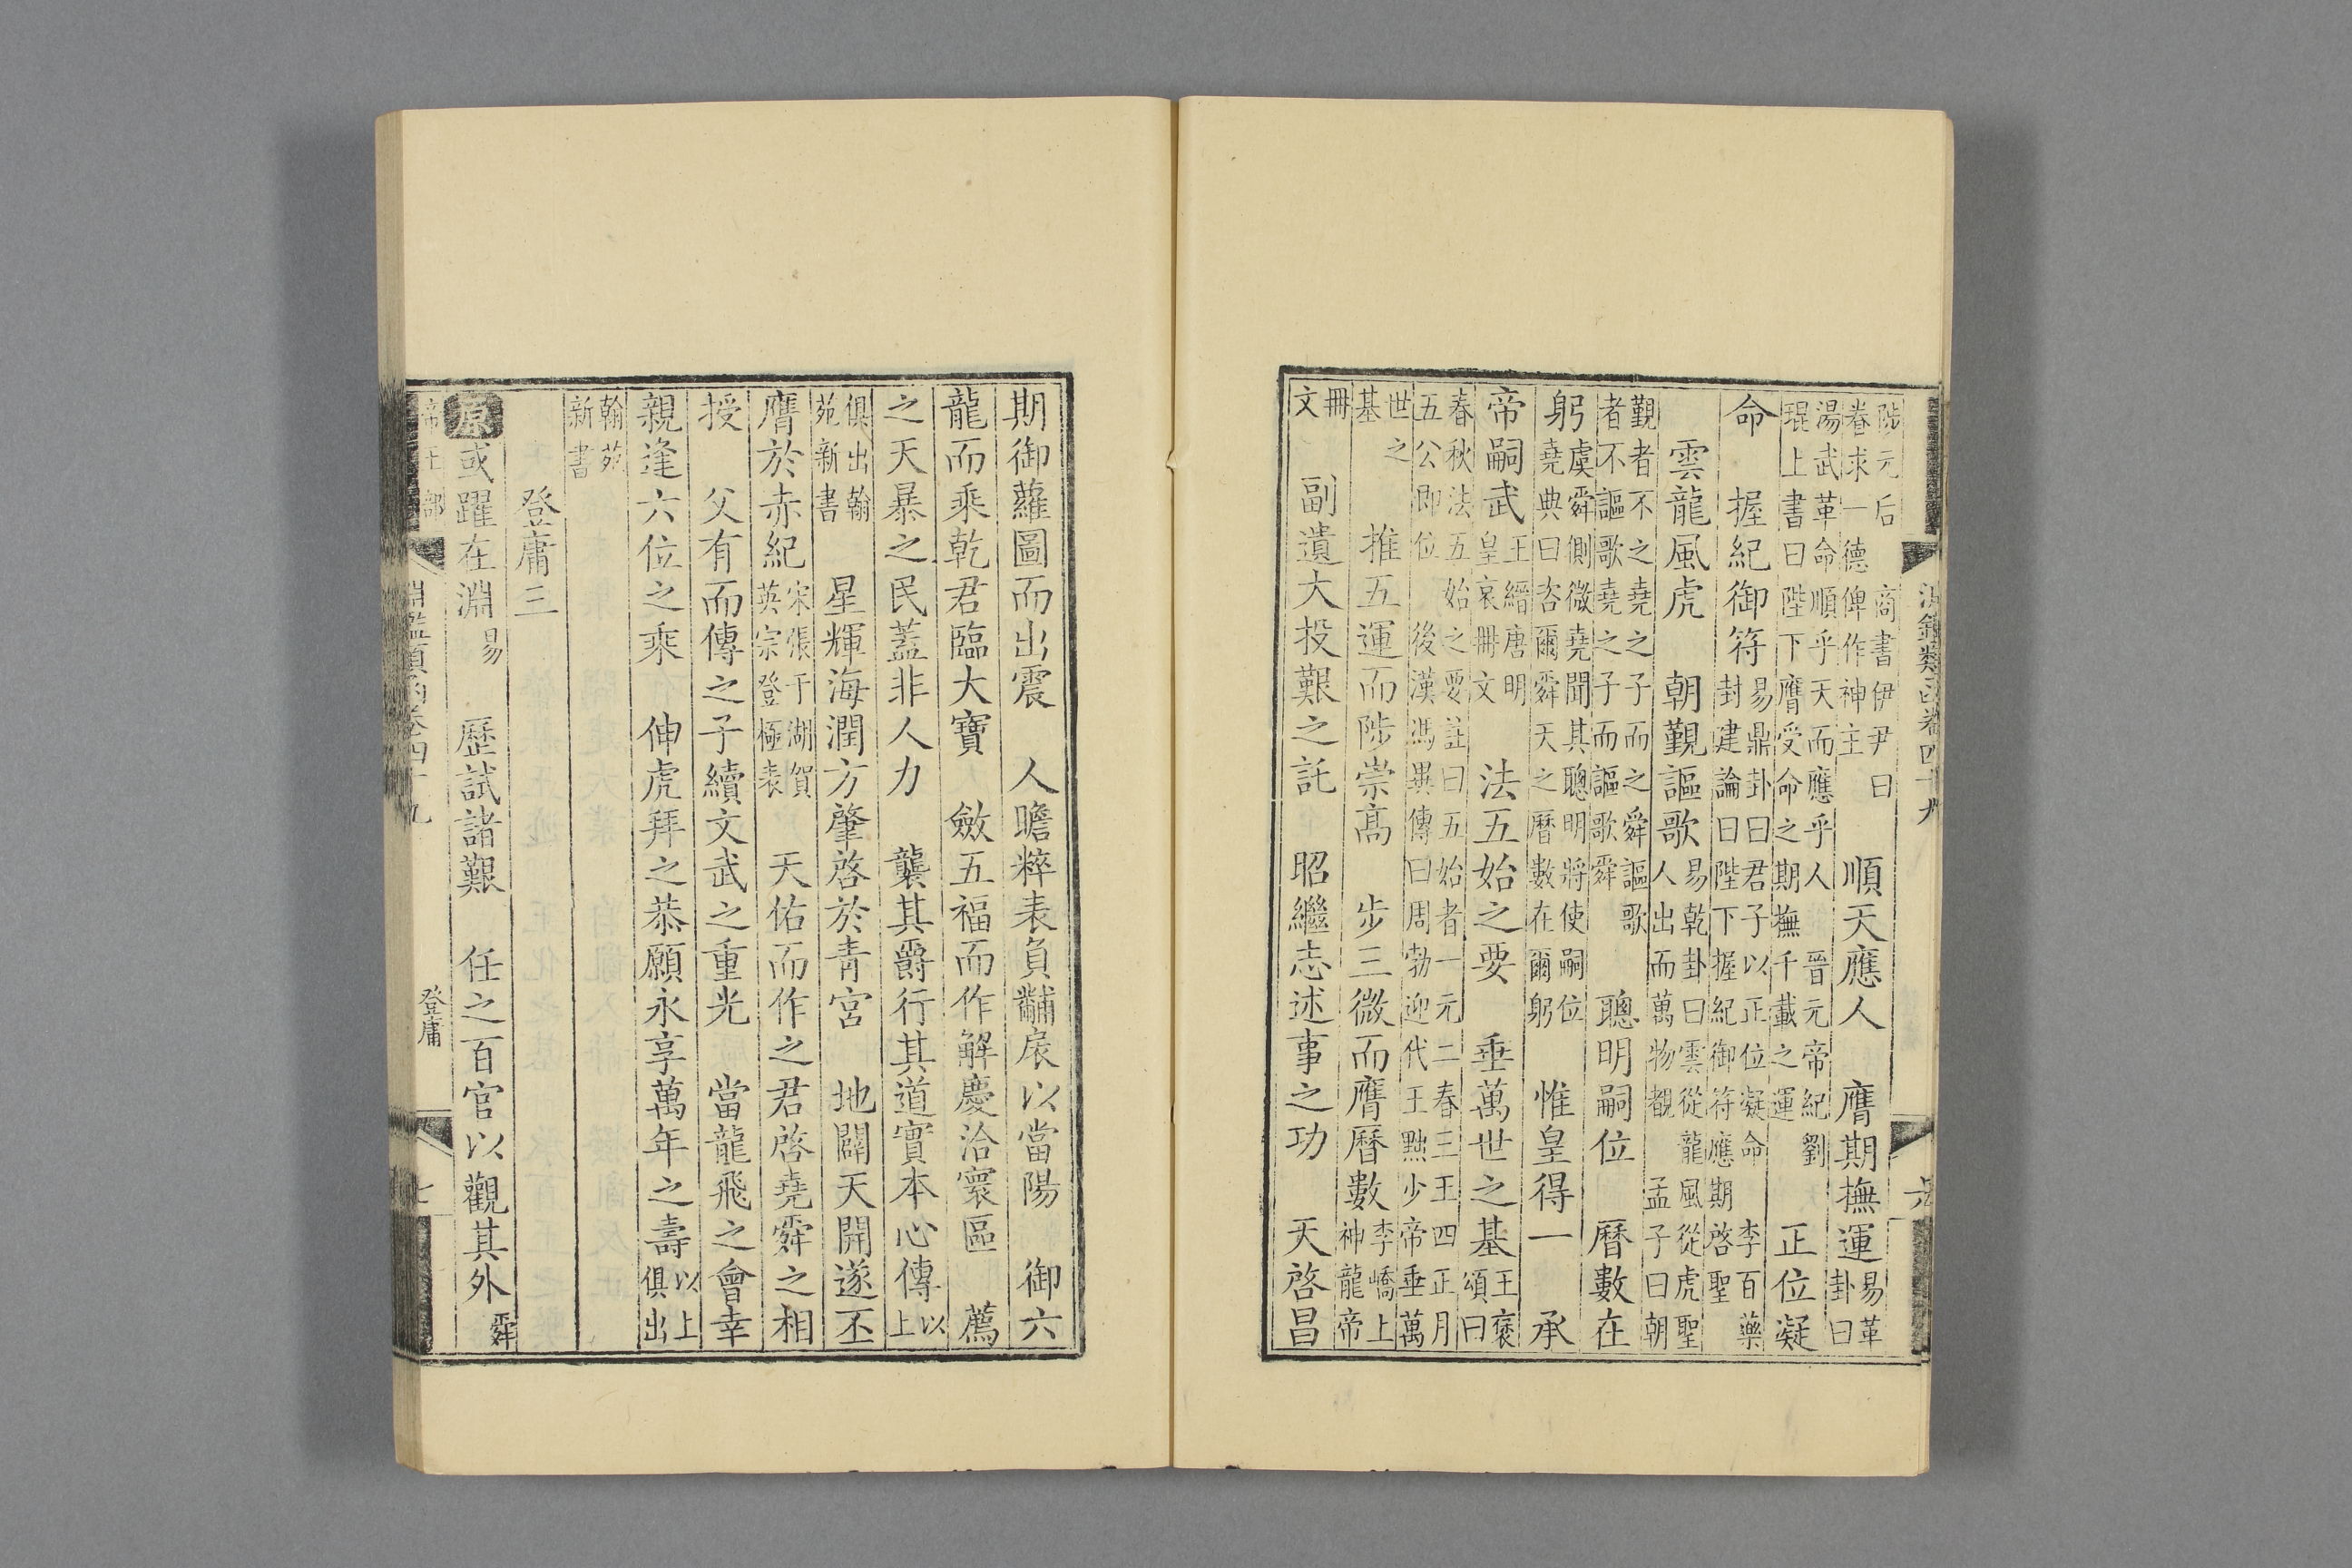 淵鑑類函卷四十九 六
陟元后 商書伊尹曰眷求一德俾作神主 順天應人 膺期撫運易革卦曰
湯武革命順乎天而應乎人 晉元帝紀劉琨上書曰陛下膺受命之期撫千載之運 正位凝
命 握紀御符易鼎卦曰君子以正位凝命 李百藥封建論曰陛下握紀御符應期啓聖
雲龍風虎 朝覲謳歌易乾卦曰雲從龍風從虎聖人出而萬物覩 孟子曰朝
覲者不之堯之子而之舜謳歌者不謳歌堯之子而謳歌舜 聰明嗣位 曆數在
躬虞舜側微堯聞其聰明將使嗣位堯典曰咨爾舜天之曆數在爾躬 惟皇得一 承
帝嗣武王縉唐明皇哀冊文 法五始之要 垂萬世之基王褒頌曰
春秋法五始之要註曰五始者一元二春三王四正月五公即位 後漢馮異傳曰周勃迎代王黜少帝垂萬
世之基 推五運而陟崇高 步三微而膺曆數李嶠上神龍帝
冊文 副遺大投艱之託 昭繼志述事之功 天啓昌
期御蘿圖而出震 人瞻粹表負黼扆以當陽 御六
龍而乘乾君臨大寶 斂五福而作解慶洽寰區 薦
之天暴之民蓋非人力 襲其爵行其道實本心傳以上
俱出翰苑新書 星輝海潤方肇啓於青宮 地闢天開遂丕
膺於赤紀宋張于湖賀英宗登極表 天佑而作之君啓堯舜之相
授 父有而傳之子續文武之重光 當龍飛之會幸
親逢六位之乘 伸虎拜之恭願永享萬年之壽以上俱出
翰苑新書
登庸三
原或躍在淵易 歷試諸艱 任之百官以觀其外舜
帝王部 淵鑑類函卷四十九 登庸 七